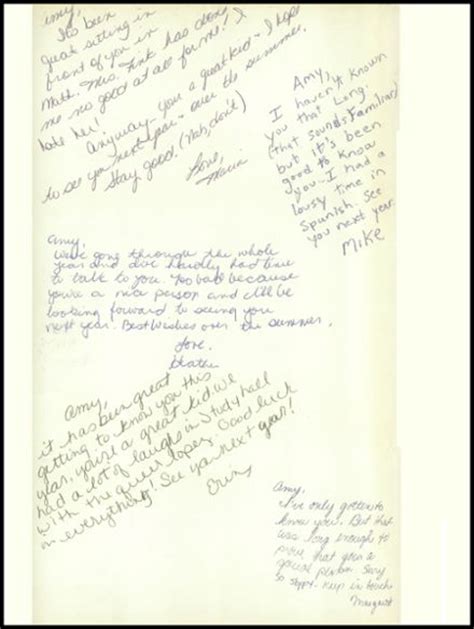 Amy,
It's been
great sitting in
front of you in
Math. Mrs. Fink has done
me no good at all for me! I
hate her!
Anyway - you a great kid - I hope
to see you next year - over the summer.
Stay good! (Nah, don't)
Love,
Maria
Amy,
I haven't known
you that long.
(that sounds familiar)
but it's been
good to know
you. I had a
lousy time in
Spanish. See
you next year.
Mike
Amy,
We've gone through the whole
year and I've hardly had time
to talk to you. Too bad because
you're a nice person and I'll be
looking forward to seeing you
next year. Best Wishes over the summer.
Love,
Heather
Amy,
it has been great
getting to know you this
year, you're a great kid. We
had a lot of laughs in Study hall
with the queer lopez. Good luck
in everything! See ya next year!
Erin
Amy,
I've only gotten to
know you. But that
was long enough to
prove that you're a
good person. Sorry
so sloppy. Keep in touch
Margaret